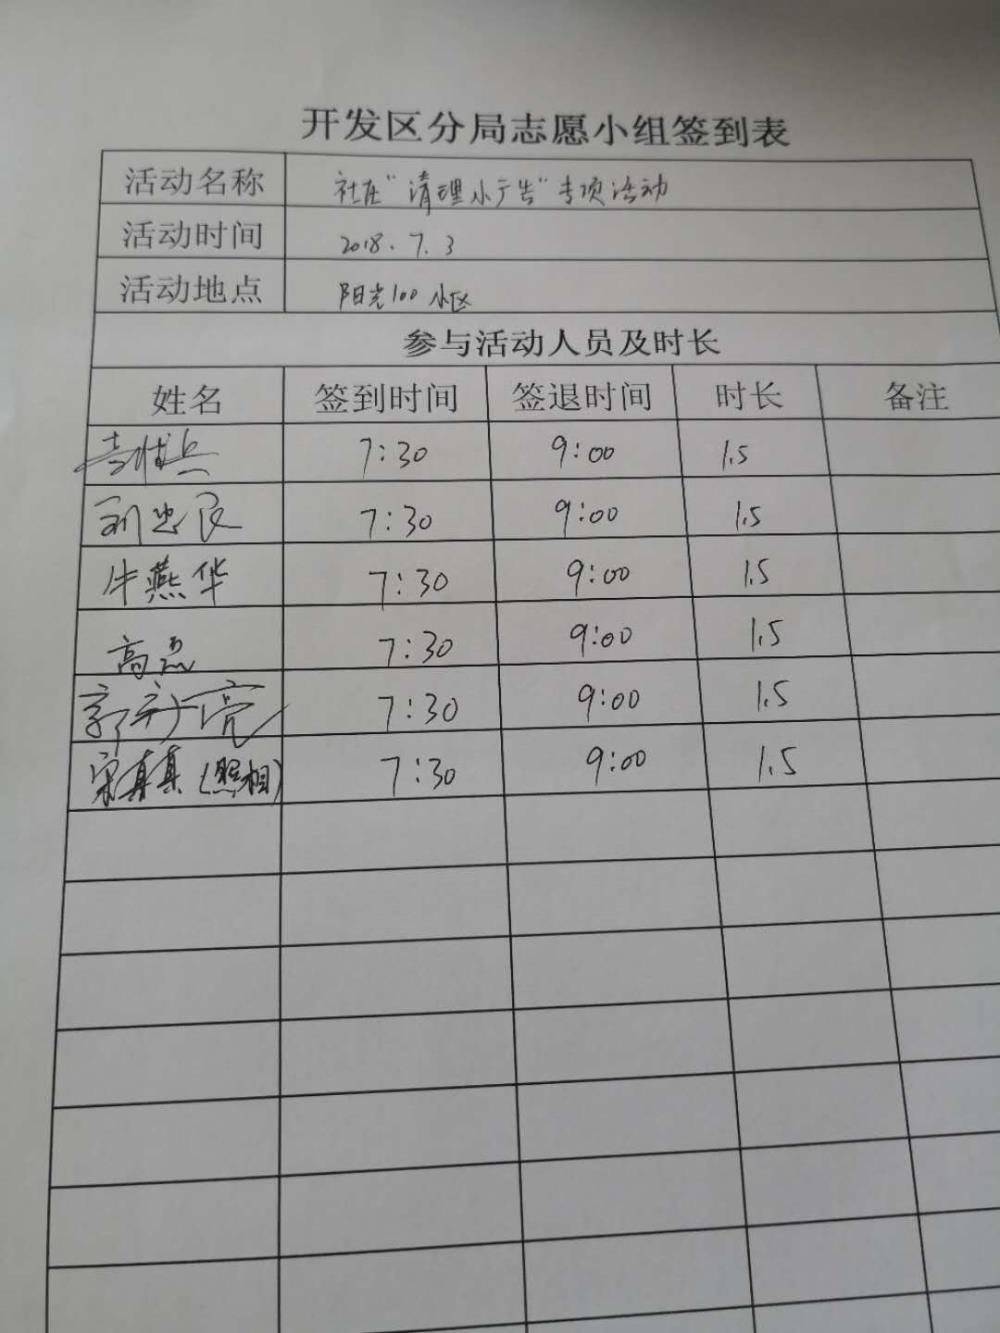 开发区分局志愿小组签到表
活动名称 社区“清理小广告”专项活动
活动时间 2018.7.3
活动地点 阳光100小区
参与活动人员及时长
姓名 签到时间 签退时间 时长 备注
7:30 9:00 1.5
刘忠良 7:30 9:00 1.5
牛燕华 7:30 9:00 1.5
高磊 7:30 9:00 1.5
郭新亮 7:30 9:00 1.5
宋真真(照相) 7:30 9:00 1.5